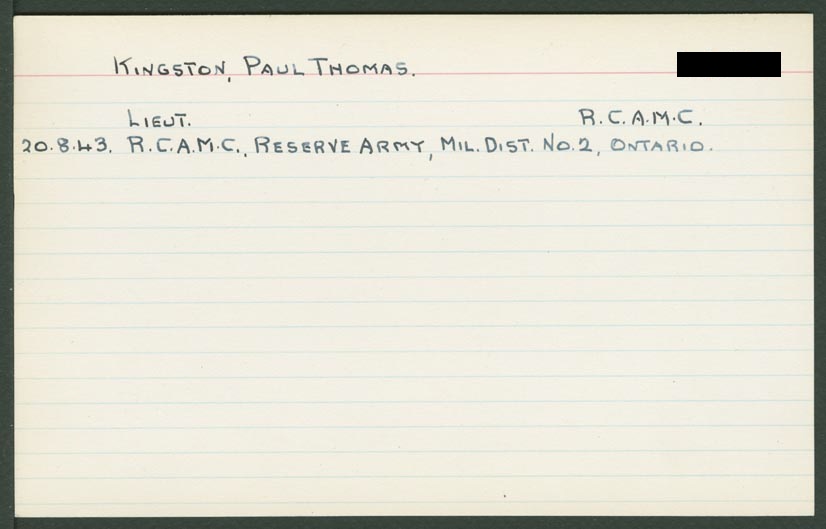 KINGSTON, PAUL THOMAS.
LIEUT. R.C.A.M.C.
20.8.43. R.C.A.M.C., RESERVE ARMY, MIL. DIST. NO. 2, ONTARIO.